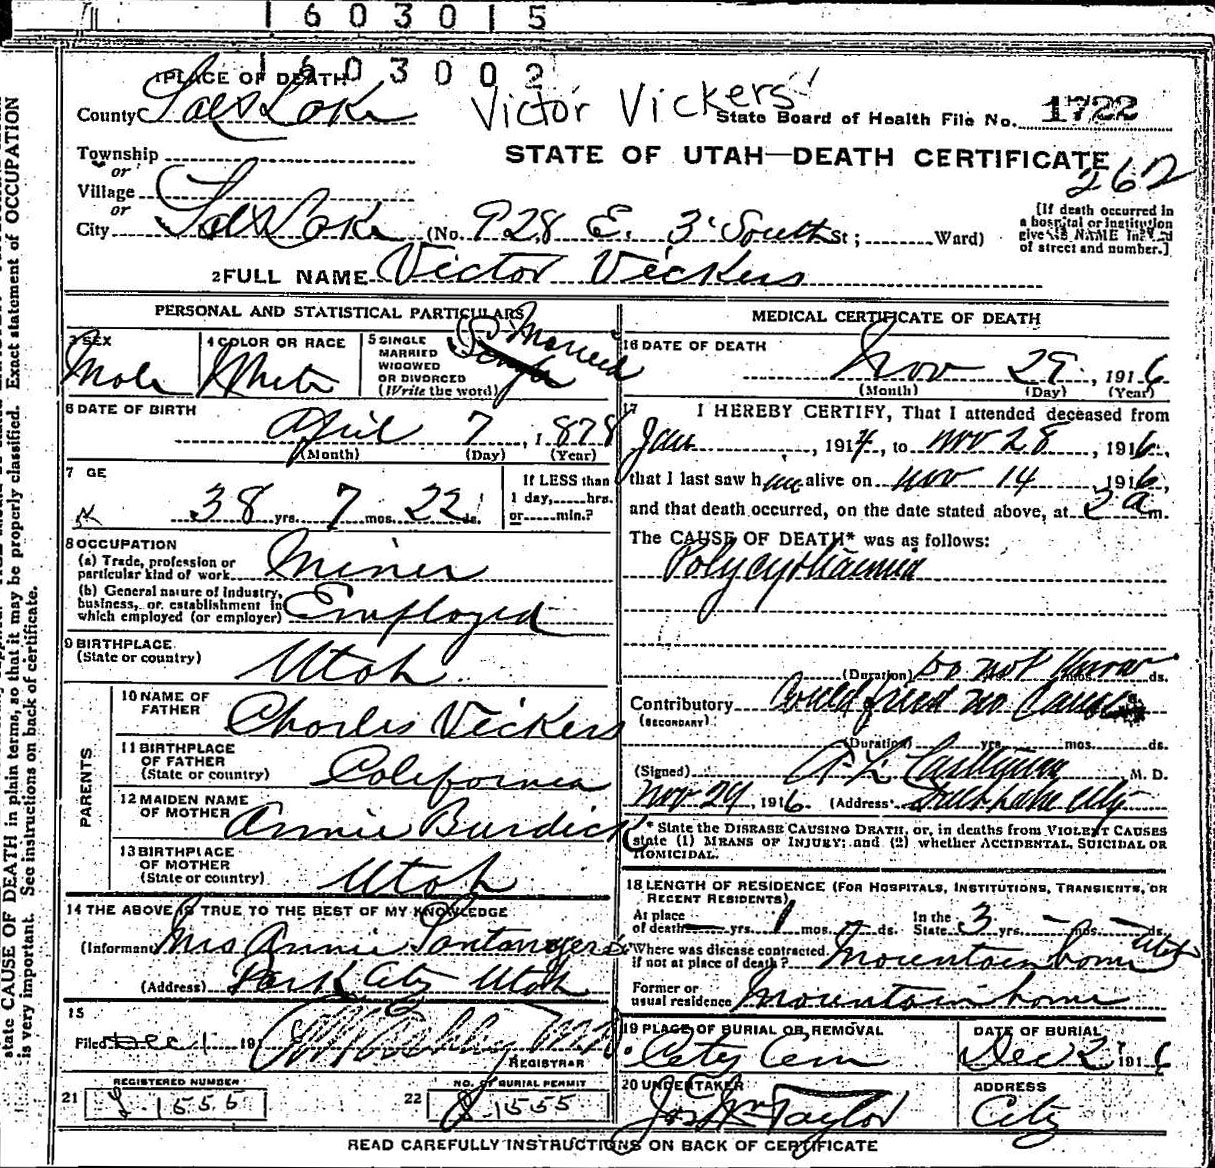 1603015
1603002
1 PLACE OF DEATH
County Salt Lake
Victor Vickers
State Board of Health File No. 1722
Township
or
STATE OF UTAH—DEATH CERTIFICATE
262
Village
or
City Salt Lake (No. 928 E. 3 South St; Ward)
[If death occurred in
a hospital or institution
give its NAME instead
of street and number.]
2 FULL NAME Victor Vickers
PERSONAL AND STATISTICAL PARTICULARS
3 SEX
Male
4 COLOR OR RACE
White
5 SINGLE
MARRIED
WIDOWED
OR DIVORCED
(Write the word)
Single
Married
6 DATE OF BIRTH
April 7, 1878
(Month) (Day) (Year)
7 GE
38 yrs. 7 mos. 22 ds.
If LESS than
1 day, hrs.
or min.?
8 OCCUPATION
(a) Trade, profession or
particular kind of work Miner
(b) General nature of Industry,
business, or establishment in
which employed (or employer) Employed
9 BIRTHPLACE
(State or country) Utah
PARENTS
10 NAME OF
FATHER Charles Vickers
11 BIRTHPLACE
OF FATHER
(State or country) California
12 MAIDEN NAME
OF MOTHER Annie Burdick
13 BIRTHPLACE
OF MOTHER
(State or country) Utah
14 THE ABOVE IS TRUE TO THE BEST OF MY KNOWLEDGE
(Informant) Mrs Annie
(Address) Park City Utah
15
Filed Dec 1 191
REGISTRAR
REGISTERED NUMBER
21 1556
NO. OF BURIAL PERMIT
22 1555
MEDICAL CERTIFICATE OF DEATH
16 DATE OF DEATH
Nov 29, 1916
(Month) (Day) (Year)
17 I HEREBY CERTIFY, That I attended deceased from
Jan, 1914, to Nov 28, 1916,
that I last saw him alive on Nov 14 1916,
and that death occurred, on the date stated above, at 2 a m.
The CAUSE OF DEATH* was as follows:
Polycythaemia
(Duration) Do not know yrs. mos. ds.
Contributory Could find no cause
(SECONDARY)
(Duration) yrs. mos. ds.
(Signed) M. D.
Nov 29, 1916 (Address) Salt Lake City
* State the DISEASE CAUSING DEATH, or, in deaths from VIOLENT CAUSES
state (1) MEANS OF INJURY; and (2) whether ACCIDENTAL, SUICIDAL OR
HOMICIDAL.
18 LENGTH OF RESIDENCE (FOR HOSPITALS, INSTITUTIONS, TRANSIENTS, OR
RECENT RESIDENTS)
At place
of death yrs. 1 mos. ds.
In the
State 3 yrs. mos. ds.
Where was disease contracted,
if not at place of death? Mountainhome Utah
Former or
usual residence Mountainhome
19 PLACE OF BURIAL OR REMOVAL
City Cem
DATE OF BURIAL
Dec 2 1916
20 UNDERTAKER
Jos Wm Taylor
ADDRESS
City
READ CAREFULLY INSTRUCTIONS ON BACK OF CERTIFICATE
state CAUSE OF DEATH in plain terms, so that it may be properly classified. Exact statement of OCCUPATION
is very important. See instructions on back of certificate.